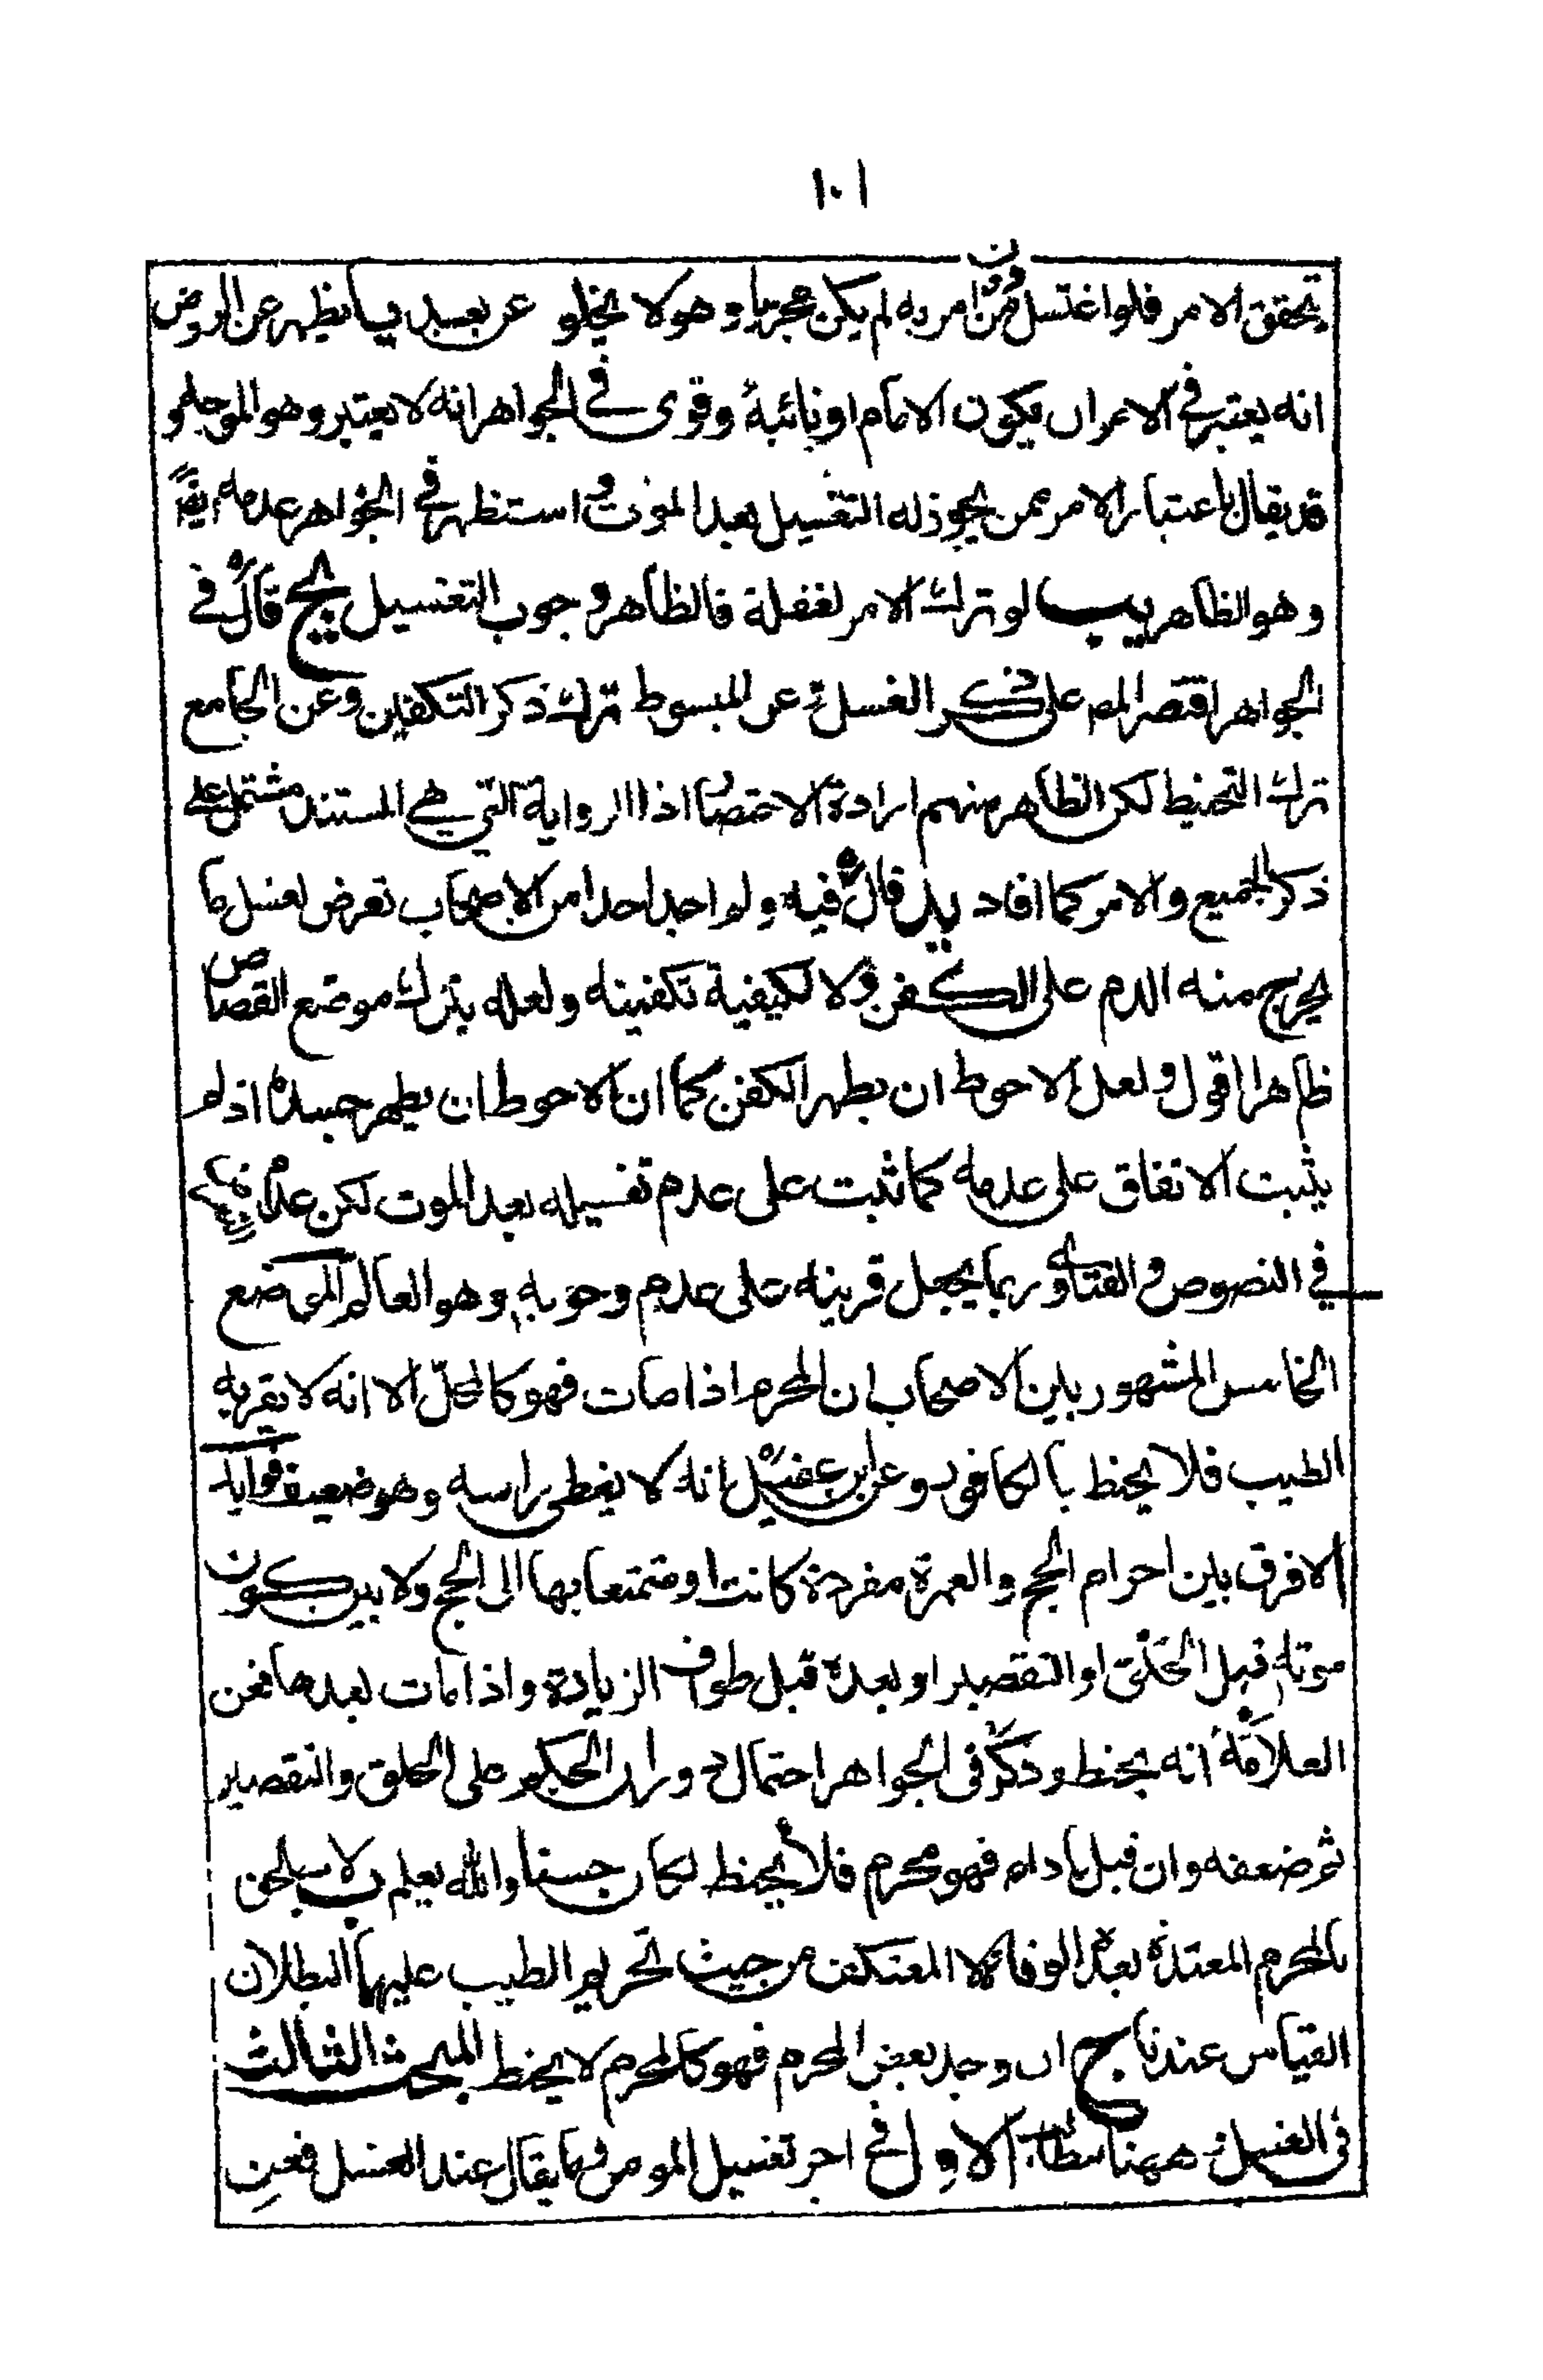 ١٠١
يتحقق الامر فلو اغتسل من دون امر به لم يكن مجزيا وهو لا يخلو عن بعد يب يظهر عن الروض
انه يعتبر في الامر ان يكون الامام او نائبه وقوى في الجواهر انه لا يعتبر وهو الموجه و
قد يقال باعتبار الامر ممن يجوز له التغسيل بعد الموت واستظهر في الجواهر عدمه ايضا
وهو الظاهر يب لو ترك الامر لغفلة فالظاهر وجوب التغسيل يج قال في
الجواهر اقتصر المص على ذكر الغسل وعن المبسوط ترك ذكر التكفين وعن الجامع
ترك التحنيط لكن الظاهر منهم ارادة الاختصار اذ الرواية التي هي المستند مشتمل على
ذكر الجميع والامر كما افاد يد قال فيه ولم اجد احدا من الاصحاب تعرض لغسل ما
يخرج منه الدم على الكفن ولا لكيفية تكفينه ولعله يترك موضع القصاص
ظاهرا اقول ولعل الاحوط ان يطهر الكفن كما ان الاحوط ان يطهر جسده اذ لم
يثبت الاتفاق على عدمه كما ثبت على عدم تغسيله بعد الموت لكن عدم
في النصوص والفتاوى ربما يجعل قرينه على عدم وجوبه وهو العالم الموضع
الخامس المشهور بين الاصحاب ان المحرم اذا مات فهو كالمحل الا انه لا يقربه
الطيب فلا يحنط بالكافور وعن ابن عقيل انه لا يغطى راسه وهو ضعيف فوايد
الا فرق بين احرام الحج والعمرة مفردة كانت او متمتعا بها الى الحج ولا بين كون
موته قبل الحلق او التقصير او بعده قبل طواف الزيادة واذا مات بعدها فعن
العلامة انه يحنط وذكر في الجواهر احتمال دوران الحكم على الحلق والتقصير
ثم ضعفه وان قبل بادائه فهو محرم فلا يحنط لكان حسنا والله يعلم ب لا يلحق
بالمحرم المعتدة بعدة الوفاة ولا المعتكف من حيث تحريم الطيب عليهما لبطلان
القياس عندنا ج ان وجد بعض المحرم فهو كالمحرم لا يحنط المبحث الثالث
في الغسل وههنا مطالب الاول في اجر تغسيل المومن وما يقال عند الغسل فعن